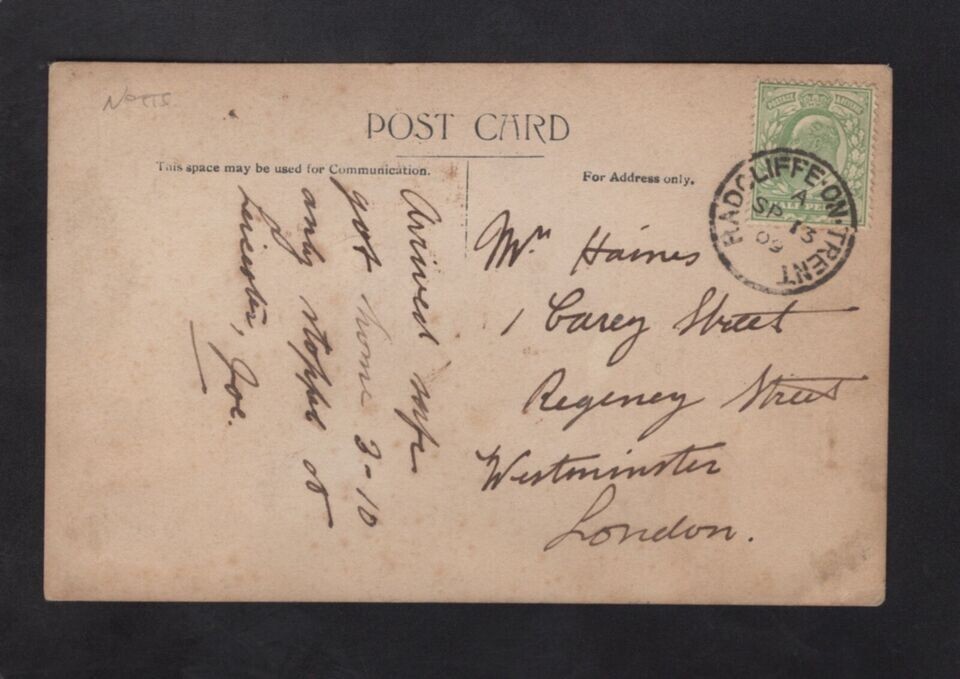 Notts
POST CARD
This space may be used for Communication.
For Address only.
RADCLIFFE-ON-TRENT
A
SP 13
09
Arrived safe
got home 3-10
only stopped at
Leicester, Joe.
Mr Haines
1 Carey Street
Regency Street
Westminster
London.